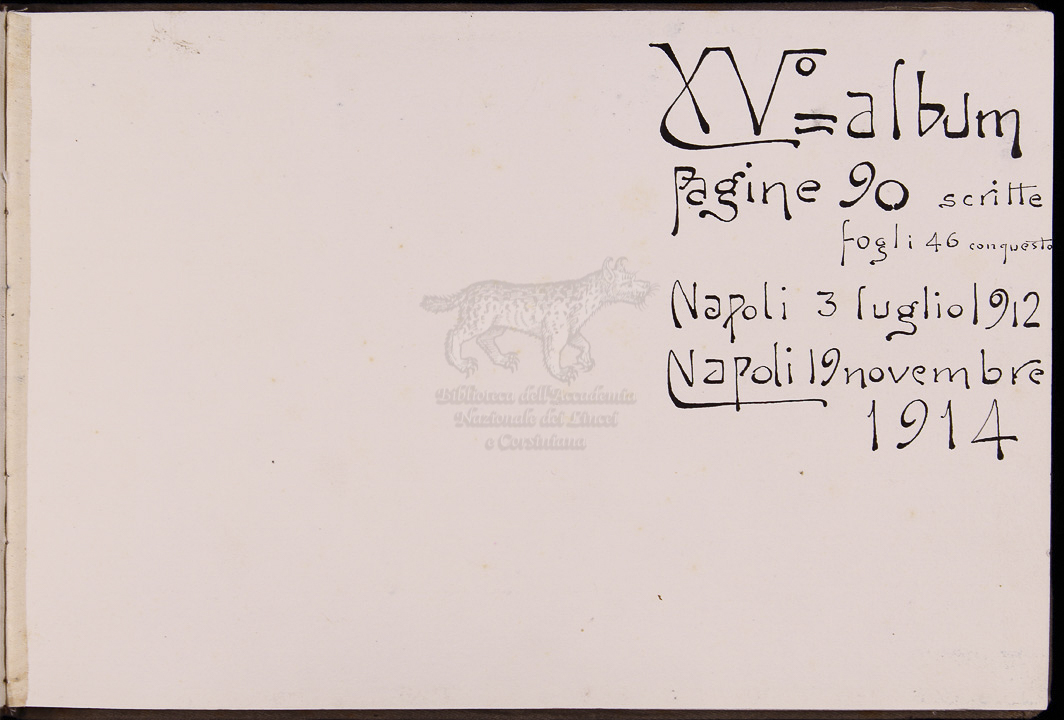 XV°=album
Pagine 90 scritte
fogli 46 conquesto
Napoli 3 luglio 1912
Napoli 19 novembre
1914
Biblioteca dell'Accademia
Nazionale dei Lincei
e Corsiniana